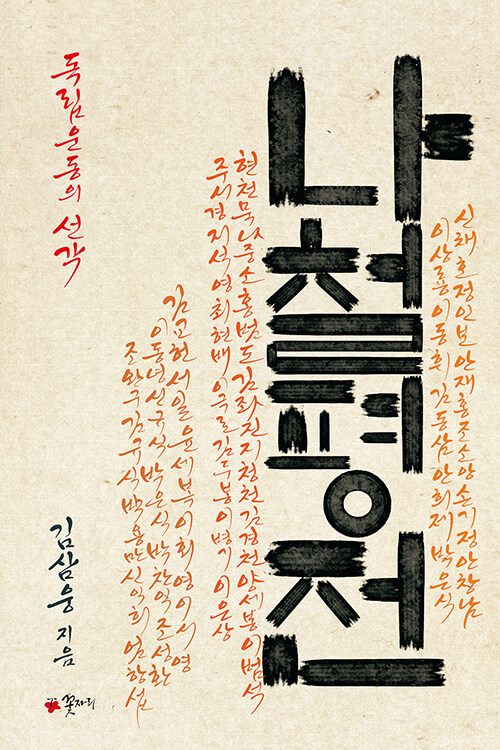 독립운동의 선각
나철평전
신채호정인보안재홍조소앙손기정안창남
이상룡이동휘김동삼안희제박은식
현천묵나중소홍범도김좌진지청천김경천양세봉이범석
주시경지석영최현배이극로김두봉이병기이은상
김교헌서일윤세복이회영이시영
이동녕신규식박은식박찬익조성환
조완구김규식박용만신익희엄항섭
김삼웅 지음
꽃자리